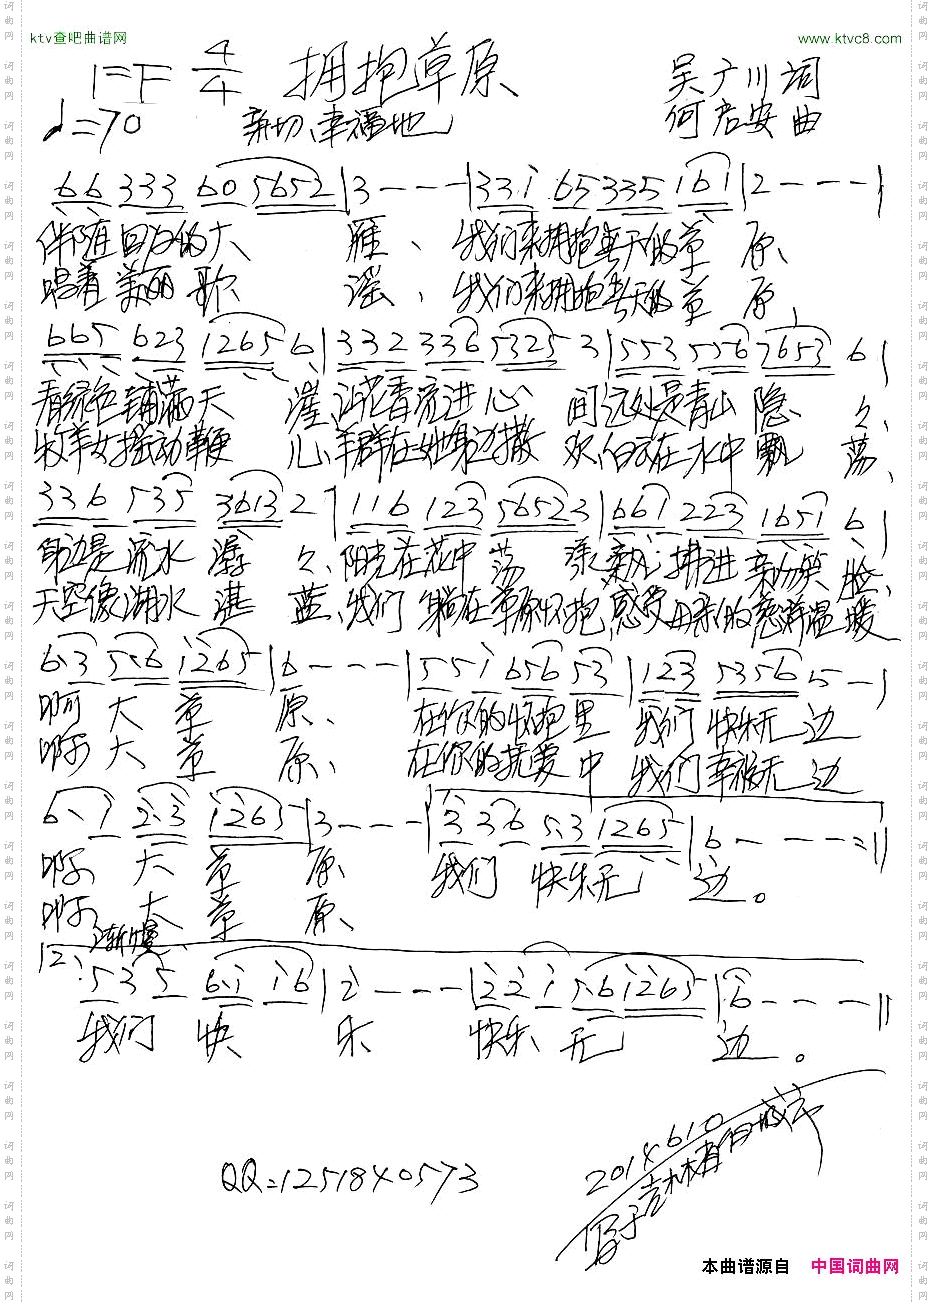 ktv查吧曲谱网
www.ktvc8.com
1=F 4/4 拥抱草原
吴广川 词
♩=70 亲切、幸福地
何启安 曲
6 6 3 3 3 6 0 5 6 5 2 | 3 - - - | 3 3 i 6 5 3 3 5 1 6 1 | 2 - - - |
伴随回归的大 雁、我们来拥抱春天的草 原、
唱着美丽歌 谣、我们来拥抱春天的草 原、
6 6 5 6 2 3 1 2 6 5 6 | 3 3 2 3 3 6 5 3 2 5 3 | 5 5 3 5 5 6 7 6 5 3 6 |
看绿色铺满天 涯、让花香流进心 间远处是青山 隐 々、
牧羊女摇动鞭 儿、羊群在她身边撒 欢、白云在水中飘 荡、
3 3 6 5 3 5 3 6 1 3 2 | 1 1 6 1 2 3 5 6 5 2 3 | 6 6 1 2 2 3 1 6 5 1 6 |
身边是流水 潺 々、阳光在花中 荡 漾、柔风拂进 亲切笑 脸、
天空像湖水 湛 蓝、我们 躺在草原怀抱、感受母亲的慈祥温 暖
6 · 3 5 · 6 i 2 6 5 | 6 - - - | 5 5 i 6 5 6 5 3 | 1 2 3 5 3 5 6 5 - |
啊 大 草 原、 在你的怀抱里 我们 快乐无 边
啊 大 草 原、 在你的抚爱中 我们幸福无 边
6 · i 2 · 3 i 2 6 5 | 3 - - - | 3 3 6 5 · 3 1 2 6 5 | 6 - - - :||
啊 大 草 原、 我们 快乐无 边。
啊 大 草 原、
渐慢
2、
5 3 5 6 · i i 6 | 2 - - - | 2 2 i 5 6 i 2 6 5 | 6 - - - ||
我们 快 乐 快乐 无 边。
2014 6 10
写于吉林省白城市
QQ=1251840573
本曲谱源自 中国词曲网